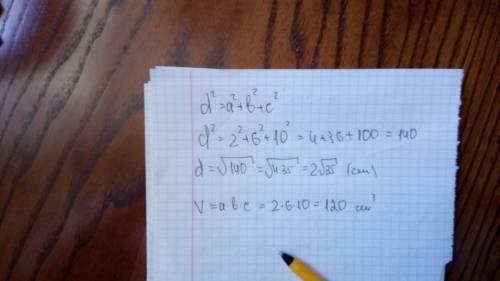 d² = a² + b² + c²
d² = 2² + 6² + 10² = 4 + 36 + 100 = 140
d = √140 = √4·35 = 2√35 (cm)
V = a·b·c = 2·6·10 = 120 cm³